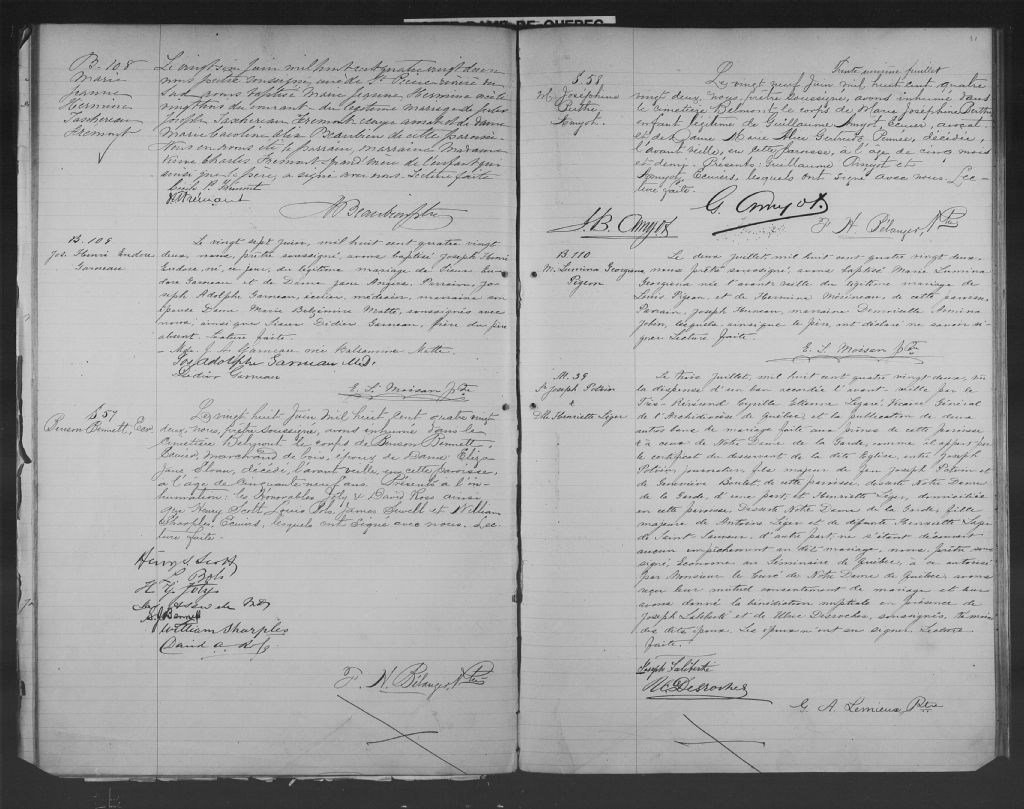 NOTRE DAME DE QUEBEC
B-108
Marie
Jeanne
Hermine
Taschereau
Fremont
Le vingt six Juin mil huit cent quatre vingt deux
nous prêtre soussigné, curé de St
avons baptisé Marie Jeanne Hermine née le
du courant du légitime mariage de Jules
Joseph Taschereau Fremont, avocat et de Dame
Marie Caroline Alix Beaubien de cette paroisse
Le parrain, marraine Madame
Charles Fremont grand mère de l'enfant qui
ainsi que le père, a signé avec nous. Lecture faite
Cecile P. Fremont
Fremont
Beaubien Ptre
B. 109
Jos. Henri Endore
Garneau
Le vingt sept Juin, mil huit cent quatre vingt
deux, nous, prêtre soussigné, avons baptisé Joseph Henri
Endore né, ce jour, du légitime mariage de Sieur En-
dore Garneau et de Dame Jane Angers. Parrain, Jo-
seph Adolphe Garneau, écuier, médecin, marraine son
épouse Dame Marie Belzémire Matte, soussignés avec
nous, ainsi que Sieur Didier Garneau, frère du père
absent. Lecture faite.
Mde J. A. Garneau née Matte
Jos Adolphe Garneau M.D.
Didier Garneau
E. S. Moisan Ptre
S. 57
Benson Bennett, Ecr
Le vingt huit Juin mil huit cent quatre vingt
deux, nous, prêtre soussigné, avons inhumé dans le
Cimetière Belmont le corps de Benson Bennett,
Ecuier, Marchand de bois, époux de Dame Eliza
Jane Sloan, décédé, l'avant veille, en cette paroisse,
à l'âge de cinquante neuf ans. Présents à l'in-
humation: les Honorables Joly & David Ross ainsi
que Henry Scott, Louis Bols, James Sewell et William
Sharples Ecuiers, lesquels ont signé avec nous. Lec-
ture faite.
Henry S. Scott
H G Joly
Bennett
William Sharples
David A. Ross
F. H. Bélanger, Ptre
Trente unième feuillet
S. 58
M. Joséphine
Berthe
Amyot.
Le vingt neuf Juin, mil huit cent quatre
vingt deux, nous prêtre soussigné, avons inhumé dans
le cimetière Belmont le corps de Marie Joséphine Berthe
enfant légitime de Guillaume Amyot, Ecuier, avocat
et de Dame Marie Alice Gertrude Pennée, décédée,
l'avant veille, en cette paroisse, à l'âge de cinq mois
et demi. Présents: Guillaume Amyot et
Amyot, Ecuiers, lesquels ont signé avec nous. Lec-
ture faite.
G. Amyot.
J. B. Amyot
F. H. Bélanger, Ptre
B. 110
M. Lumina Georgiana
Pigeon
Le deux Juillet, mil huit cent quatre vingt deux,
nous, prêtre soussigné, avons baptisé Marie Lumina
Georgiana née l'avant veille du légitime mariage de
Louis Pigeon et de Hermine Moineau, de cette paroisse.
Parrain, Joseph Juneau, marraine Demoiselle Armina
Jobin, lesquels ainsi que le père, ont déclaré ne savoir si-
gner. Lecture faite.
E. S. Moisan Ptre
M. 39
Js. Joseph Potvin
&
Dlle Henriette Léger
Le trois Juillet, mil huit cent quatre vingt deux, vu
la dispense d'un ban accordée l'avant veille par le
Très Révérend Cyrille Etienne Légaré, Vicaire Général
de l'Archidiocèse de Québec, et la publication de deux
autres bans de mariage faite aux prônes de cette paroisse
et à ceux de Notre Dame de la Garde, comme il appert par
le certificat du desservant de la dite Eglise, entre Joseph
Potvin, journalier, fils majeur de feu Joseph Potvin et
de Geneviève Boulet, de cette paroisse, desserte Notre Dame
de la Garde, d'une part, et Henriette Léger, domiciliée
en cette paroisse, Desserte Notre Dame de la Garde, fille
majeure de Antoine Léger et de défunte Henriette Sage
de Saint Sauveur, d'autre part, ne s'étant découvert
aucun empêchement au dit mariage, nous, prêtre sous-
signé, Econome au Séminaire de Québec, à ce autorisé
par Monsieur le Curé de Notre Dame de Québec, avons
reçu leur mutuel consentement de mariage et leur
avons donné la bénédiction nuptiale en présence de
Joseph Laliberté et de Ulric Desroches, soussignés, témoins
des dits époux. Les époux n'ont su signer. Lecture
faite.
Joseph Laliberté
U. Desroches
G. A. Lemieux, Ptre